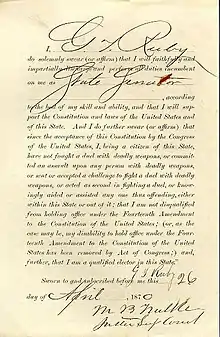 I, G T Ruby
do solemnly swear (or affirm) that I will faithfully and
impartially discharge and perform all duties incumbent
on me as State Senator
according
to the best of my skill and ability, and that I will sup-
port the Constitution and laws of the United States and
of this State. And I do further swear (or affirm) that
since the acceptance of this Constitution by the Congress
of the United States, I, being a citizen of this State,
have not fought a duel with deadly weapons, or commit-
ted an assault upon any person with deadly weapons,
or sent or accepted a challenge to fight a duel with deadly
weapons, or acted as second in fighting a duel, or know-
ingly aided or assisted any one thus offending, either
within the State or out of it; that I am not disqualified
from holding office under the Fourteenth Amendment
to the Constitution of the United States; (or, as the
case may be, my disability to hold office under the Four-
teenth Amendment to the Constitution of the United
States has been removed by Act of Congress;) and,
further, that I am a qualified elector in this State."
G T Ruby
Sworn to and subscribed before me this 26
day of April, 1870
M B